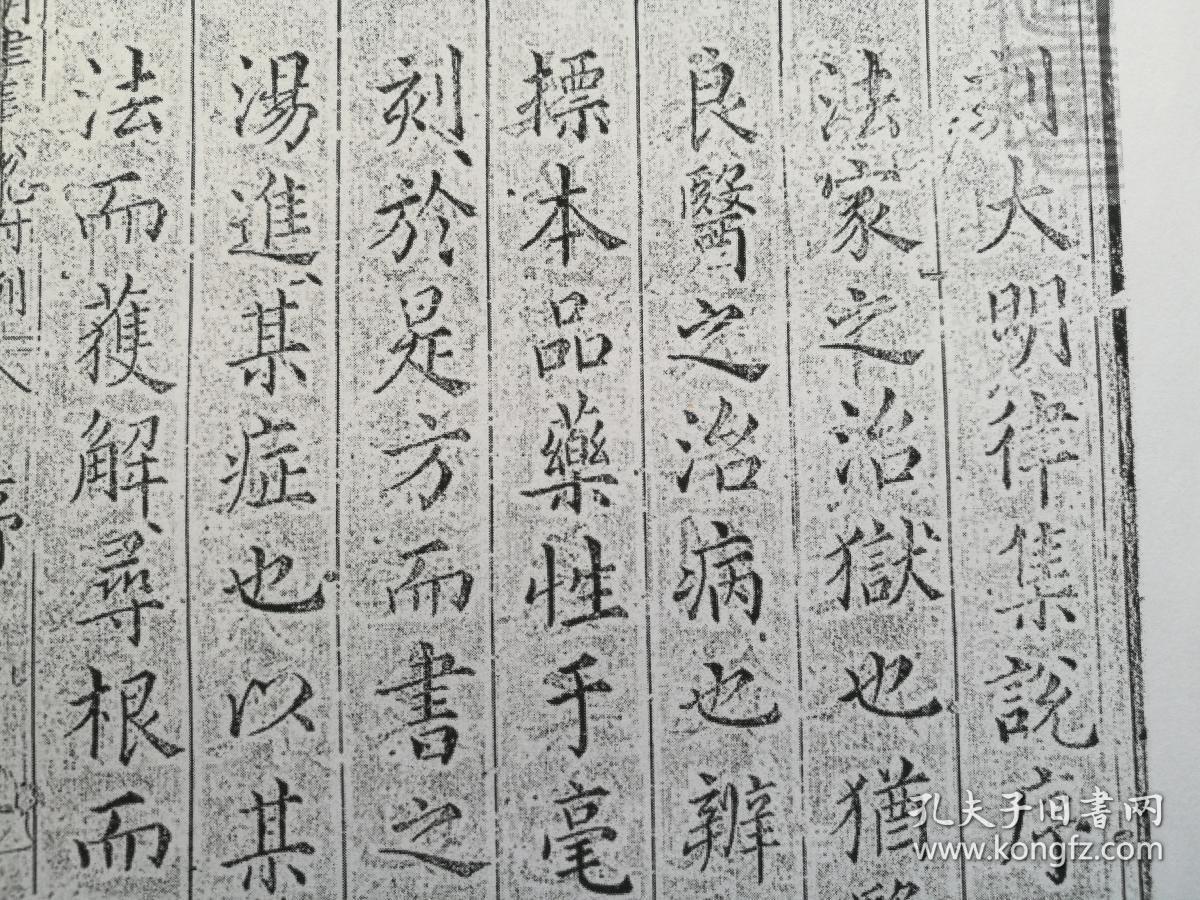 刻大明律集說序
法家之治獄也猶
良醫之治病也辨
標本品藥性于毫
刻於是方而書之
湯進某症也以某
法而獲解尋根而
孔夫子旧書网
www.kongfz.com